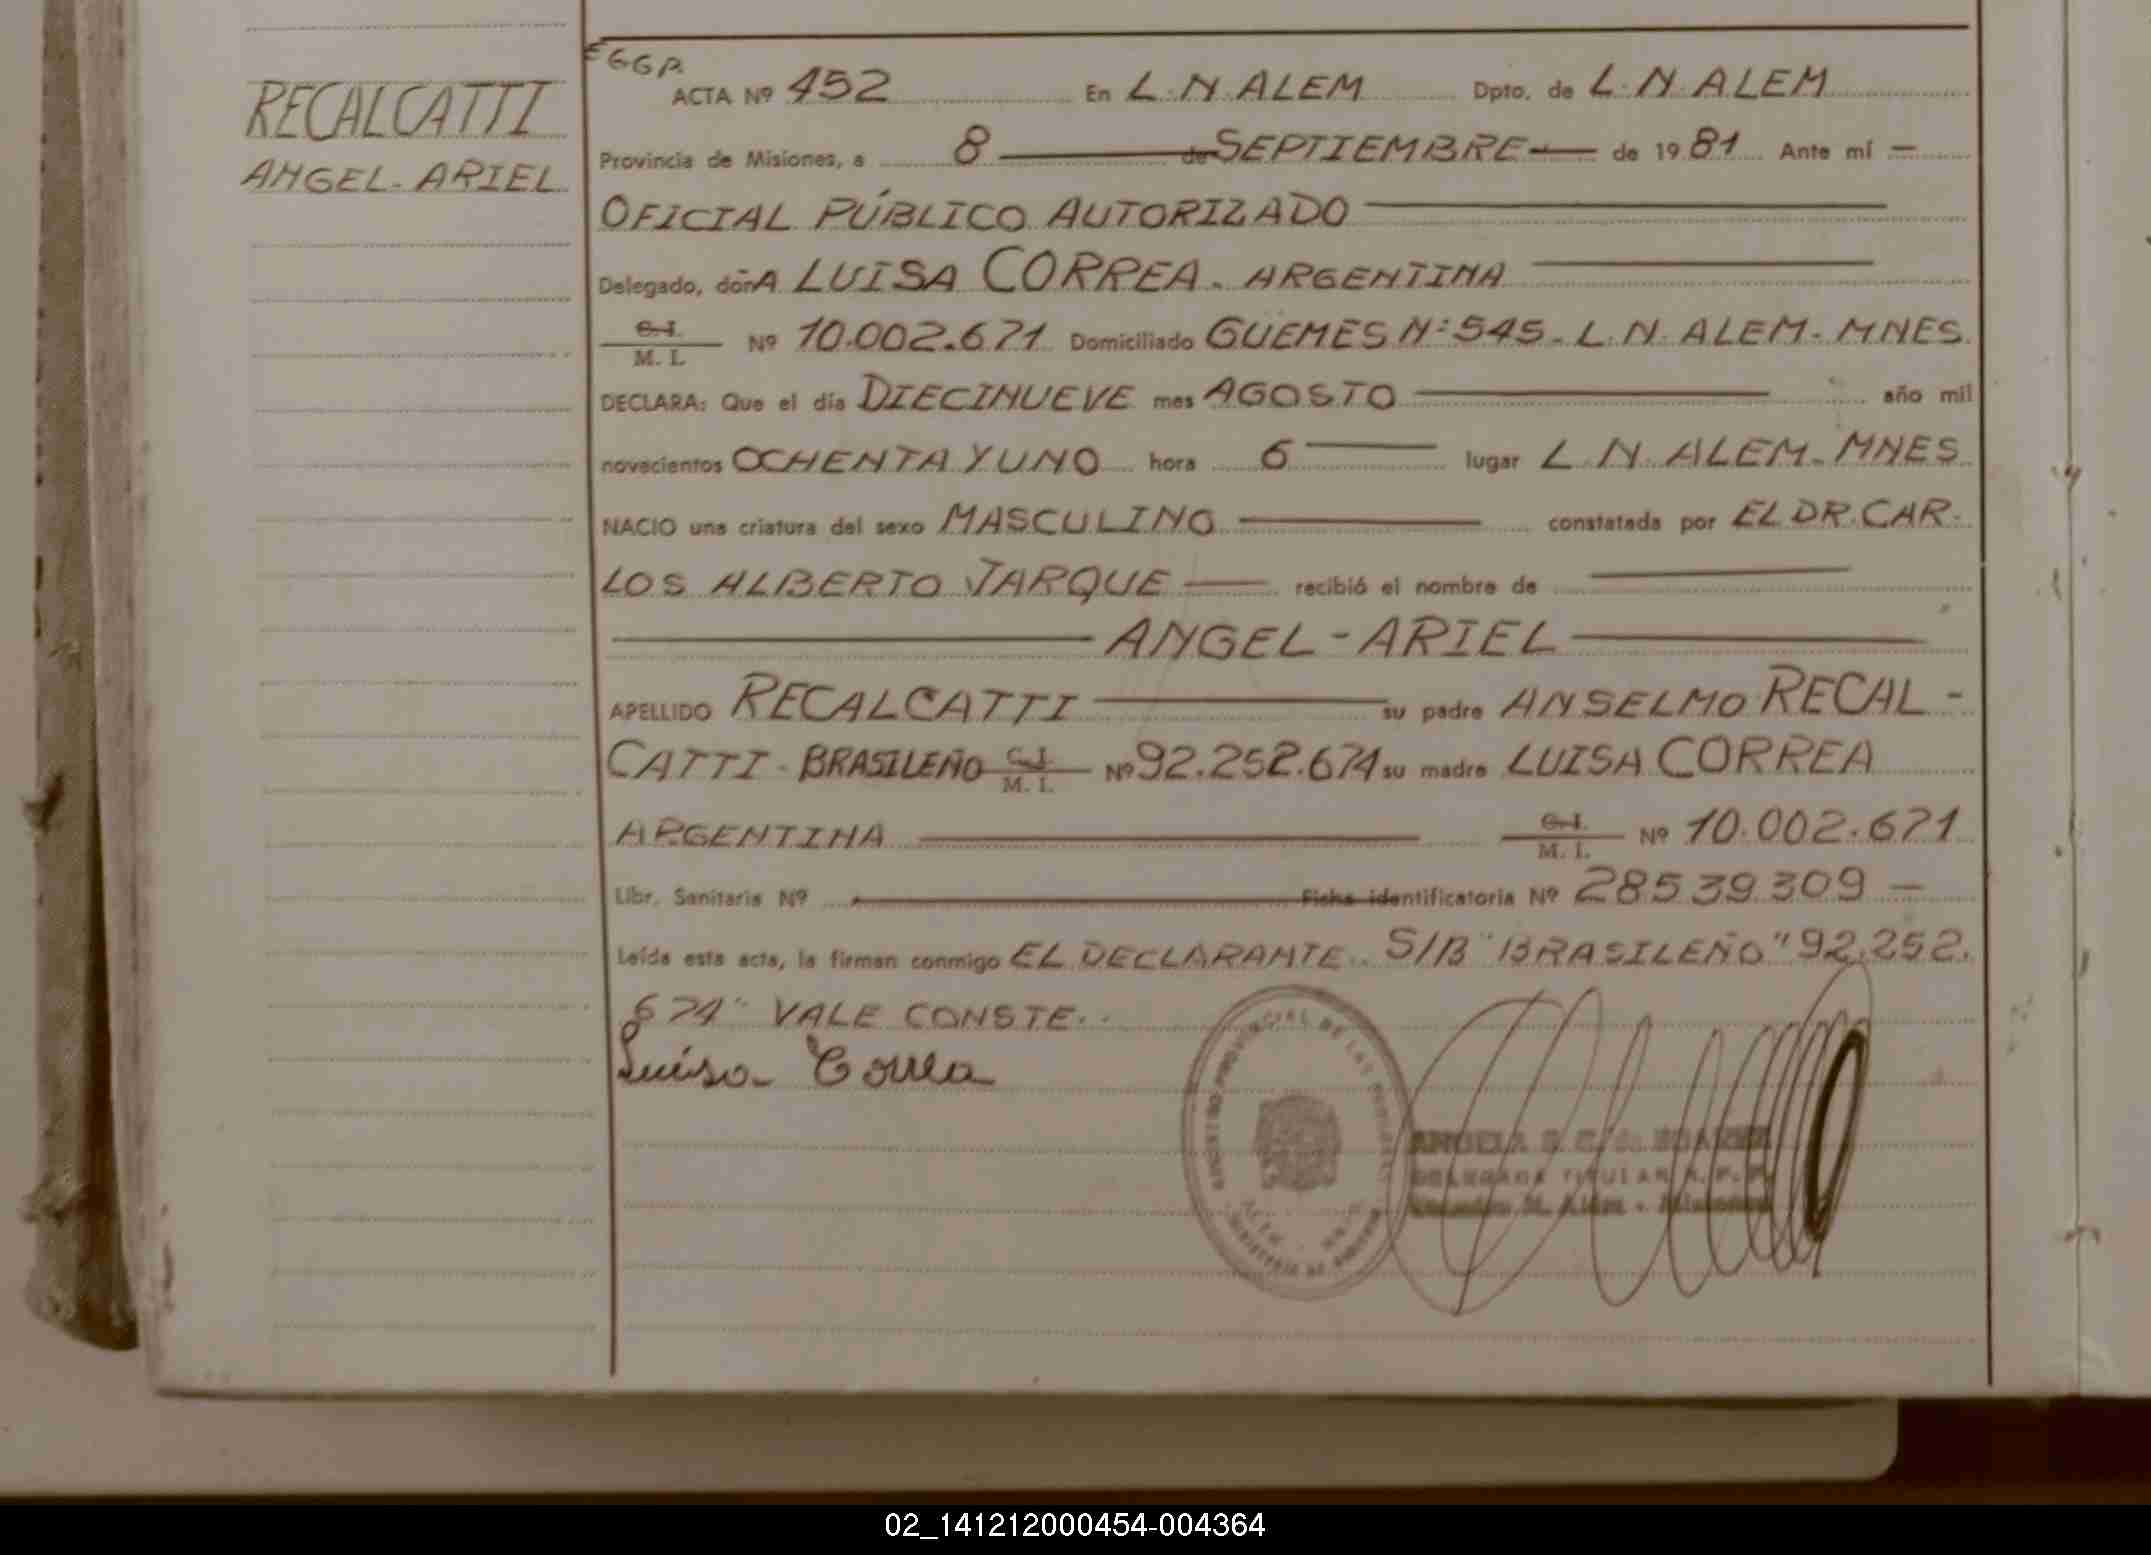 RECALCATTI
ANGEL-ARIEL
EGGP.
ACTA Nº 452 En L.N.ALEM Dpto. de L.N.ALEM
Provincia de Misiones, a 8 de SEPTIEMBRE de 1981 Ante mí
OFICIAL PÚBLICO AUTORIZADO
Delegado, doñA LUISA CORREA. ARGENTINA
C.I. M. I. Nº 10.002.671 Domiciliado GUEMES Nº 545. L.N. ALEM. MNES
DECLARA: Que el día DIECINUEVE mes AGOSTO año mil
novecientos OCHENTA Y UNO hora 6 lugar L.N. ALEM. MNES
NACIO una criatura del sexo MASCULINO constatada por EL DR. CAR-
LOS ALBERTO JARQUE recibió el nombre de
ANGEL-ARIEL
APELLIDO RECALCATTI su padre ANSELMO RECAL-
CATTI. BRASILEÑO C.I. M. I. Nº 92.252.674 su madre LUISA CORREA
ARGENTINA C.I. M. I. Nº 10.002.671
Libr. Sanitaria Nº Ficha identificatoria Nº 28539309
Leída esta acta, la firman conmigo EL DECLARANTE. S/B "BRASILEÑO" "92.252.
674" VALE CONSTE.
Luisa Correa
REGISTRO PROVINCIAL DE LAS PERSONAS
DELEGADA TITULAR R. P. P.
Leandro N. Alem - Misiones
02_141212000454-004364